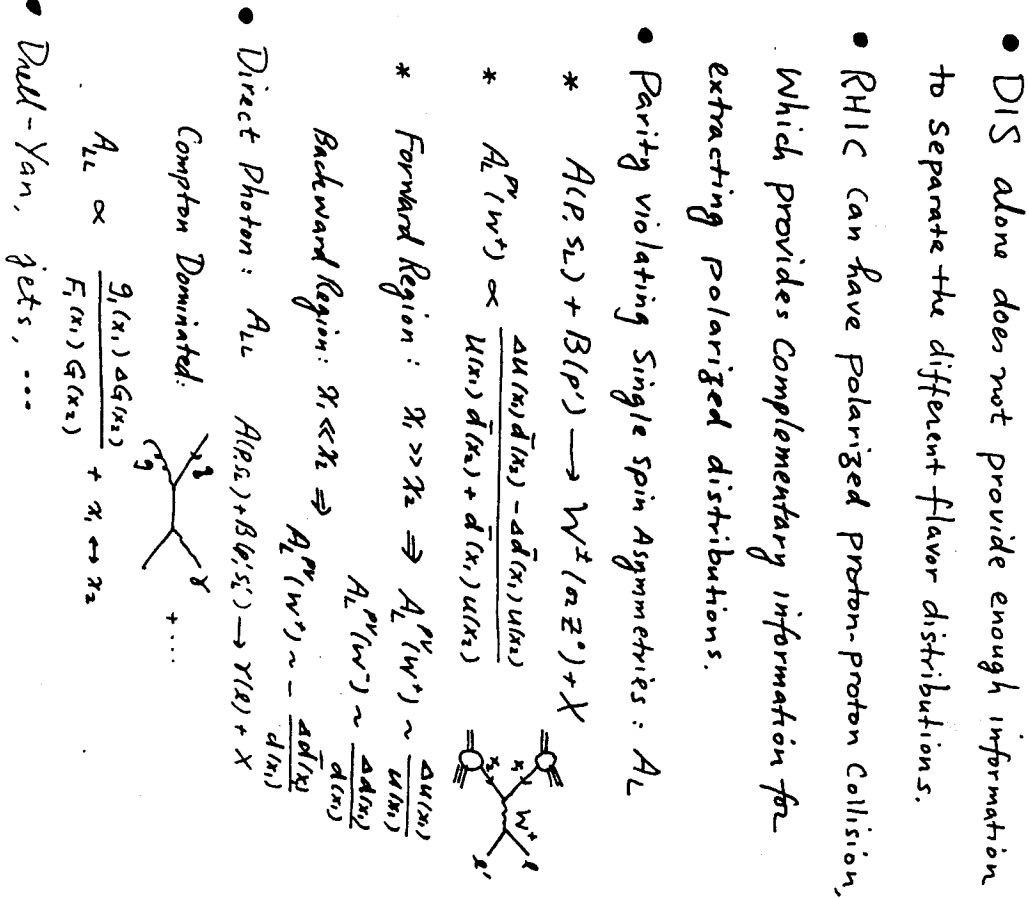 • DIS alone does not provide enough information
to separate the different flavor distributions.
• RHIC can have polarized proton-proton collision,
Which provides Complementary information for
extracting polarized distributions.
• Parity violating Single spin Asymmetries : A_L
* A(P, S_L) + B(P') → W^± (or Z°) + X
* A_L^{PV}(W^+) ∝ \frac{Δu(x_1) \bar{d}(x_2) - Δ\bar{d}(x_1) u(x_2)}{u(x_1) \bar{d}(x_2) + \bar{d}(x_1) u(x_2)}
x_1 x_2 W^+ l l'
* Forward Region : x_1 >> x_2 ⇒ A_L^{PV}(W^+) ~ \frac{Δu(x_1)}{u(x_1)}
A_L^{PV}(W^-) ~ \frac{Δd(x_1)}{d(x_1)}
Backward Region : x_1 << x_2 ⇒ A_L^{PV}(W^+) ~ - \frac{Δ\bar{d}(x_1)}{\bar{d}(x_1)}
• Direct Photon : A_{LL} A(P, S_L) + B(P', S_L') → γ(l) + X
Compton Dominated: q g γ + ....
A_{LL} ∝ \frac{g_1(x_1) ΔG(x_2)}{F_1(x_1) G(x_2)} + x_1 ↔ x_2
• Drell-Yan, jets, ...